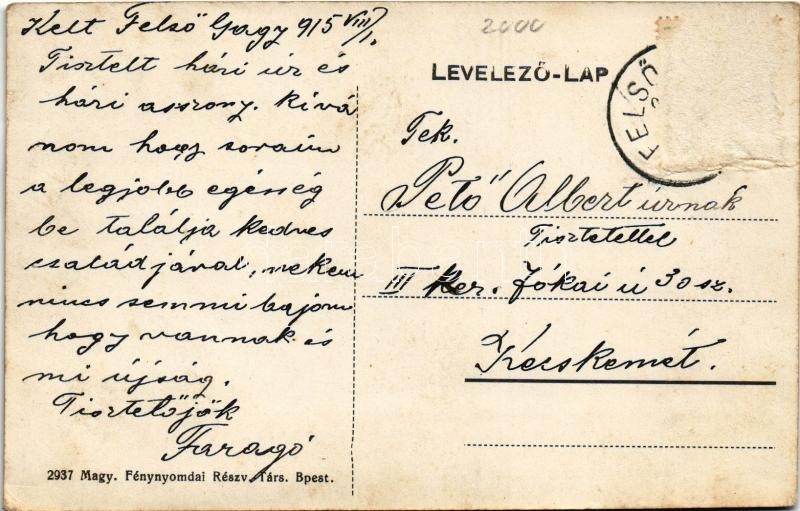 Kelt Felső Gagy 915 VIII/1.
Tisztelt hári úr és
hári asszony. kivá
nom hogy soraim
a legjobb egésség
be találja kedves
családjával, nekem
nincs semmi bajom
hogy vannak és
mi újság.
Tisztelőjök
Faragó
2937 Magy. Fénynyomdai Részv. Társ. Bpest.
2000
LEVELEZŐ-LAP
FELSŐ
Tek.
Pető Albert úrnak
Tisztelettel
III ker. Jókai ú 30 sz.
Kecskemét.